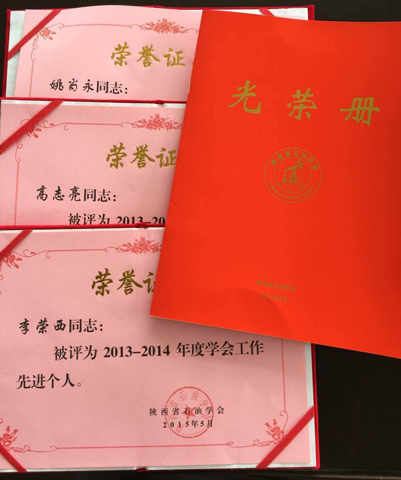 荣誉证
姚岗永同志：
荣誉证
高志亮同志：
被评为 2013-20
荣誉证
李荣西同志：
被评为 2013-2014 年度学会工作
先进个人。
陕西省石油学会
2015年5月
光荣册